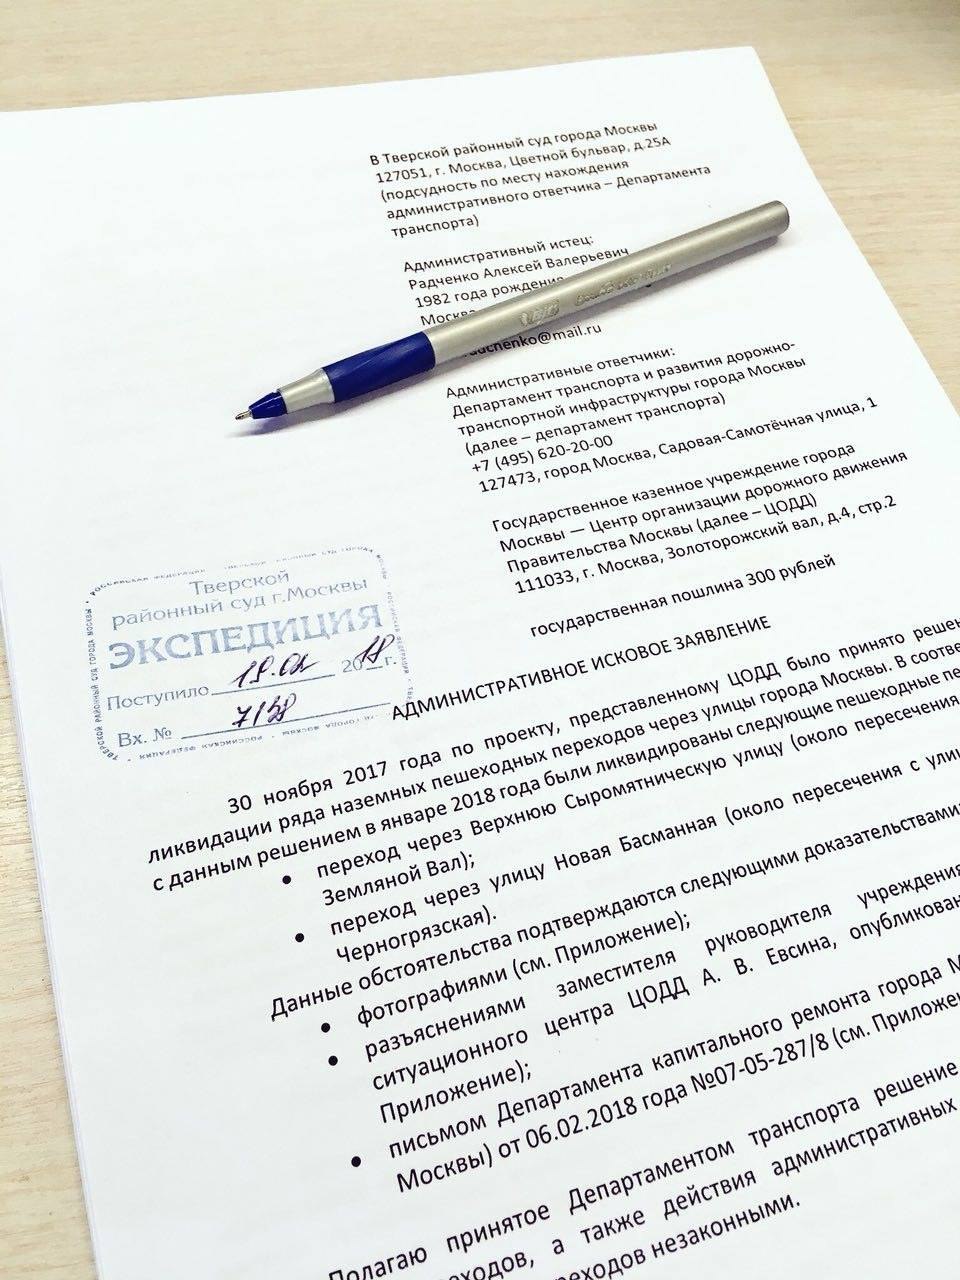 В Тверской районный суд города Москвы
127051, г. Москва, Цветной бульвар, д.25А
(подсудность по месту нахождения
административного ответчика – Департамента
транспорта)
Административный истец:
Радченко Алексей Валерьевич
1982 года рождения
Москва
@mail.ru
Административные ответчики:
Департамент транспорта и развития дорожно-
транспортной инфраструктуры города Москвы
(далее – департамент транспорта)
+7 (495) 620-20-00
127473, город Москва, Садовая-Самотёчная улица, 1
Государственное казенное учреждение города
Москвы — Центр организации дорожного движения
Правительства Москвы (далее – ЦОДД)
111033, г. Москва, Золоторожский вал, д.4, стр.2
государственная пошлина 300 рублей
Тверской
районный суд г.Москвы
ЭКСПЕДИЦИЯ
Поступило 2018 г.
Вх. №
АДМИНИСТРАТИВНОЕ ИСКОВОЕ ЗАЯВЛЕНИЕ
30 ноября 2017 года по проекту, представленному ЦОДД было принято решен
ликвидации ряда наземных пешеходных переходов через улицы города Москвы. В соотве
с данным решением в январе 2018 года были ликвидированы следующие пешеходные пе
• переход через Верхнюю Сыромятническую улицу (около пересечения
Земляной Вал);
• переход через улицу Новая Басманная (около пересечения с ули
Черногрязская).
Данные обстоятельства подтверждаются следующими доказательствами:
• фотографиями (см. Приложение);
• разъяснениями заместителя руководителя учреждения
ситуационного центра ЦОДД А. В. Евсина, опубликован
Приложение);
• письмом Департамента капитального ремонта города М
Москвы) от 06.02.2018 года №07-05-287/8 (см. Приложен
Полагаю принятое Департаментом транспорта решение
еходов, а также действия административных
реходов незаконными.